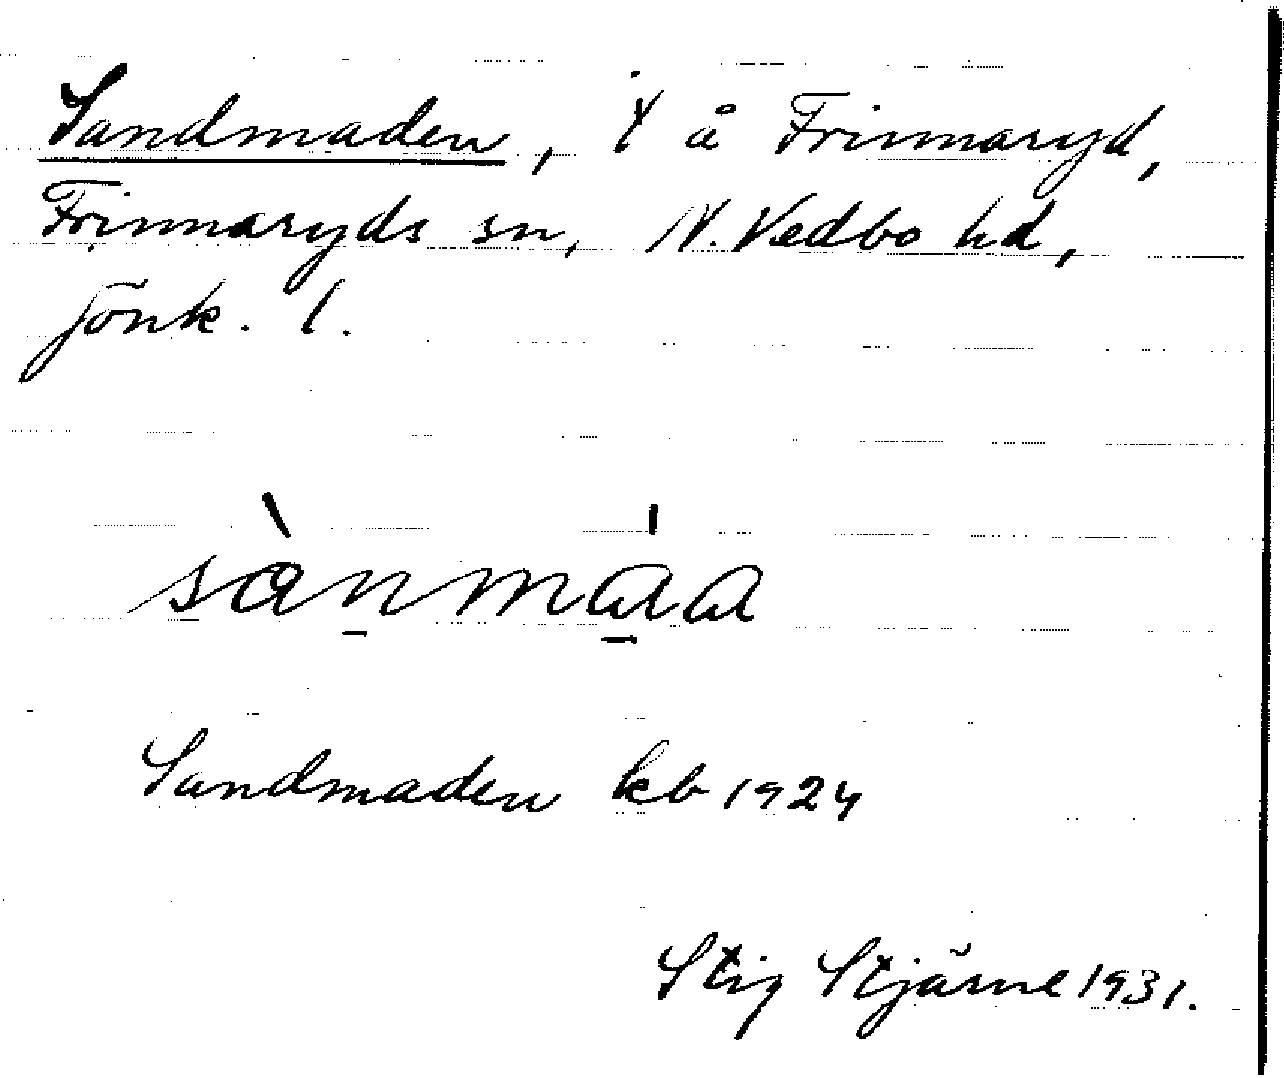 Sandmaden, t å Frinnaryd,
Frinnaryds sn, N. Vedbo hd,
Jönk. l.
sànmáa
Sandmaden kb 1924
Stig Stjärne 1931.